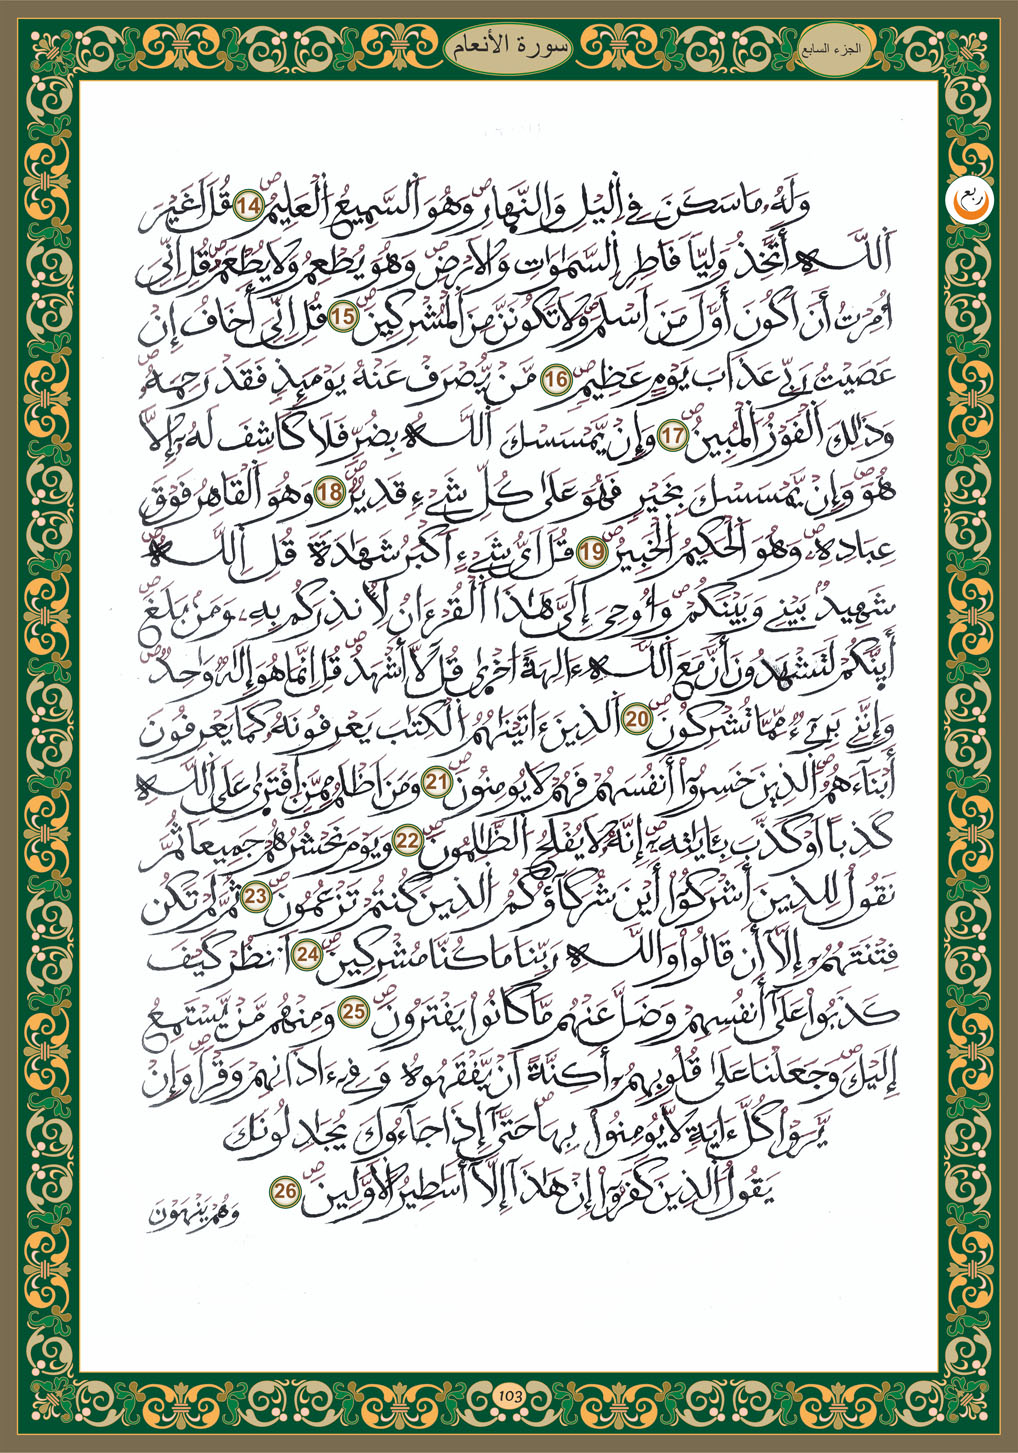 الجزء السابع
سورة الأنعام
ربع
وَلَهُۥ مَا سَكَنَ فِے اِ۬ليْلِ وَالنَّهارِۖ وَهُوَ اَ۬لسَّمِيعُ اُ۬لْعَلِيمُۖ 14 قُلَ اَغَيْرَ
اَ۬للَّهِ أَتَّخِذُ وَلِيّاٗ فَاطِرِ اِ۬لسَّمَٰوَٰتِ وَالَارْضِۖ وَهُوَ يُطْعِمُ وَلَا يُطْعَمُۖ قُلِ اِنِّيَ
أُمِرْتُ أَنَ اَكُونَ أَوَّلَ مَنَ اَسْلَمَۖ وَلَا تَكُونَنَّ مِنَ اَ۬لْمُشْرِكِينَۖ 15 قُلِ اِنِّيَ أَخَافُ إِنْ
عَصَيْتُ رَبِّے عَذَابَ يَوْمٍ عَظِيمٖۖ 16 مَّنْ يُّصْرَفْ عَنْهُ يَوْمَئِذٖ فَقَدْ رَحِمَهُۥۖ
وَذَٰلِكَ اَ۬لْفَوْزُ اُ۬لْمُبِينُۖ 17 وَإِنْ يَّمْسَسْكَ اَ۬للَّهُ بِضُرّٖ فَلَا كَاشِفَ لَهُۥٓ إِلَّا
هُوَۖ وَإِنْ يَّمْسَسْكَ بِخَيْرٖ فَهُوَ عَلَىٰ كُلِّ شَےْءٖ قَدِيرٞۖ 18 وَهُوَ اَ۬لْقَاهِرُ فَوْقَ
عِبَادِهِۦۖ وَهُوَ اَ۬لْحَكِيمُ اُ۬لْخَبِيرُۖ 19 قُلَ اَيُّ شَےْءٍ اَكْبَرُ شَهَٰدَةٗ قُلِ اِ۬للَّهُۖ
شَهِيدُۢ بَيْنِے وَبَيْنَكُمْۖ وَأُوحِيَ إِلَيَّ هَٰذَا اَ۬لْقُرْءَانُ لِأُنذِرَكُم بِهِۦ وَمَنۢ بَلَغَۖ
أَئِنَّكُمْ لَتَشْهَدُونَ أَنَّ مَعَ اَ۬للَّهِ ءَالِهَةً اُخْرَىٰ قُل لَّا أَشْهَدُۖ قُلِ اِنَّمَا هُوَ إِلَٰهٞ وَٰحِدٞۖ
وَإِنَّنِے بَرِےٓءٞ مِّمَّا تُشْرِكُونَۖ 20 اَ۬لذِينَ ءَاتَيْنَٰهُمُ اُ۬لْكِتَٰبَ يَعْرِفُونَهُۥ كَمَا يَعْرِفُونَ
أَبْنَآءَهُمُۖ اُ۬لذِينَ خَسِرُوٓاْ أَنفُسَهُمْ فَهُمْ لَا يُومِنُونَۖ 21 وَمَنَ اَظْلَمُ مِمَّنِ اِ۪فْتَرَىٰ عَلَى اَ۬للَّهِ
كَذِباً اَوْ كَذَّبَ بِـَٔايَٰتِهِۦٓۖ إِنَّهُۥ لَا يُفْلِحُ اُ۬لظَّٰلِمُونَۖ 22 وَيَوْمَ نَحْشُرُهُمْ جَمِيعاٗ ثُمَّ
نَقُولُ لِلذِينَ أَشْرَكُوٓاْ أَيْنَ شُرَكَآؤُكُمُ اُ۬لذِينَ كُنتُمْ تَزْعُمُونَۖ 23 ثُمَّ لَمْ تَكُن
فِتْنَتَهُمُۥٓ إِلَّآ أَن قَالُواْ وَاللَّهِ رَبِّنَا مَا كُنَّا مُشْرِكِينَۖ 24 اَ۟نظُرْ كَيْفَ
كَذَبُواْ عَلَىٰٓ أَنفُسِهِمْ وَضَلَّ عَنْهُم مَّا كَانُواْ يَفْتَرُونَۖ 25 وَمِنْهُم مَّنْ يَّسْتَمِعُ
إِلَيْكَۖ وَجَعَلْنَا عَلَىٰ قُلُوبِهِمُۥٓ أَكِنَّةً اَنْ يَّفْقَهُوهُ وَفِےٓ ءَاذَانِهِمْ وَقْراٗۖ وَإِنْ
يَّرَوْاْ كُلَّ ءَايَةٖ لَّا يُومِنُواْ بِهَا حَتَّىٰٓ إِذَا جَآءُوكَ يُجَٰدِلُونَكَ
يَقُولُ اُ۬لذِينَ كَفَرُوٓاْ إِنْ هَٰذَآ إِلَّآ أَسَٰطِيرُ اُ۬لَاوَّلِينَۖ 26
وَهُمْ يَنْهَوْنَ
103